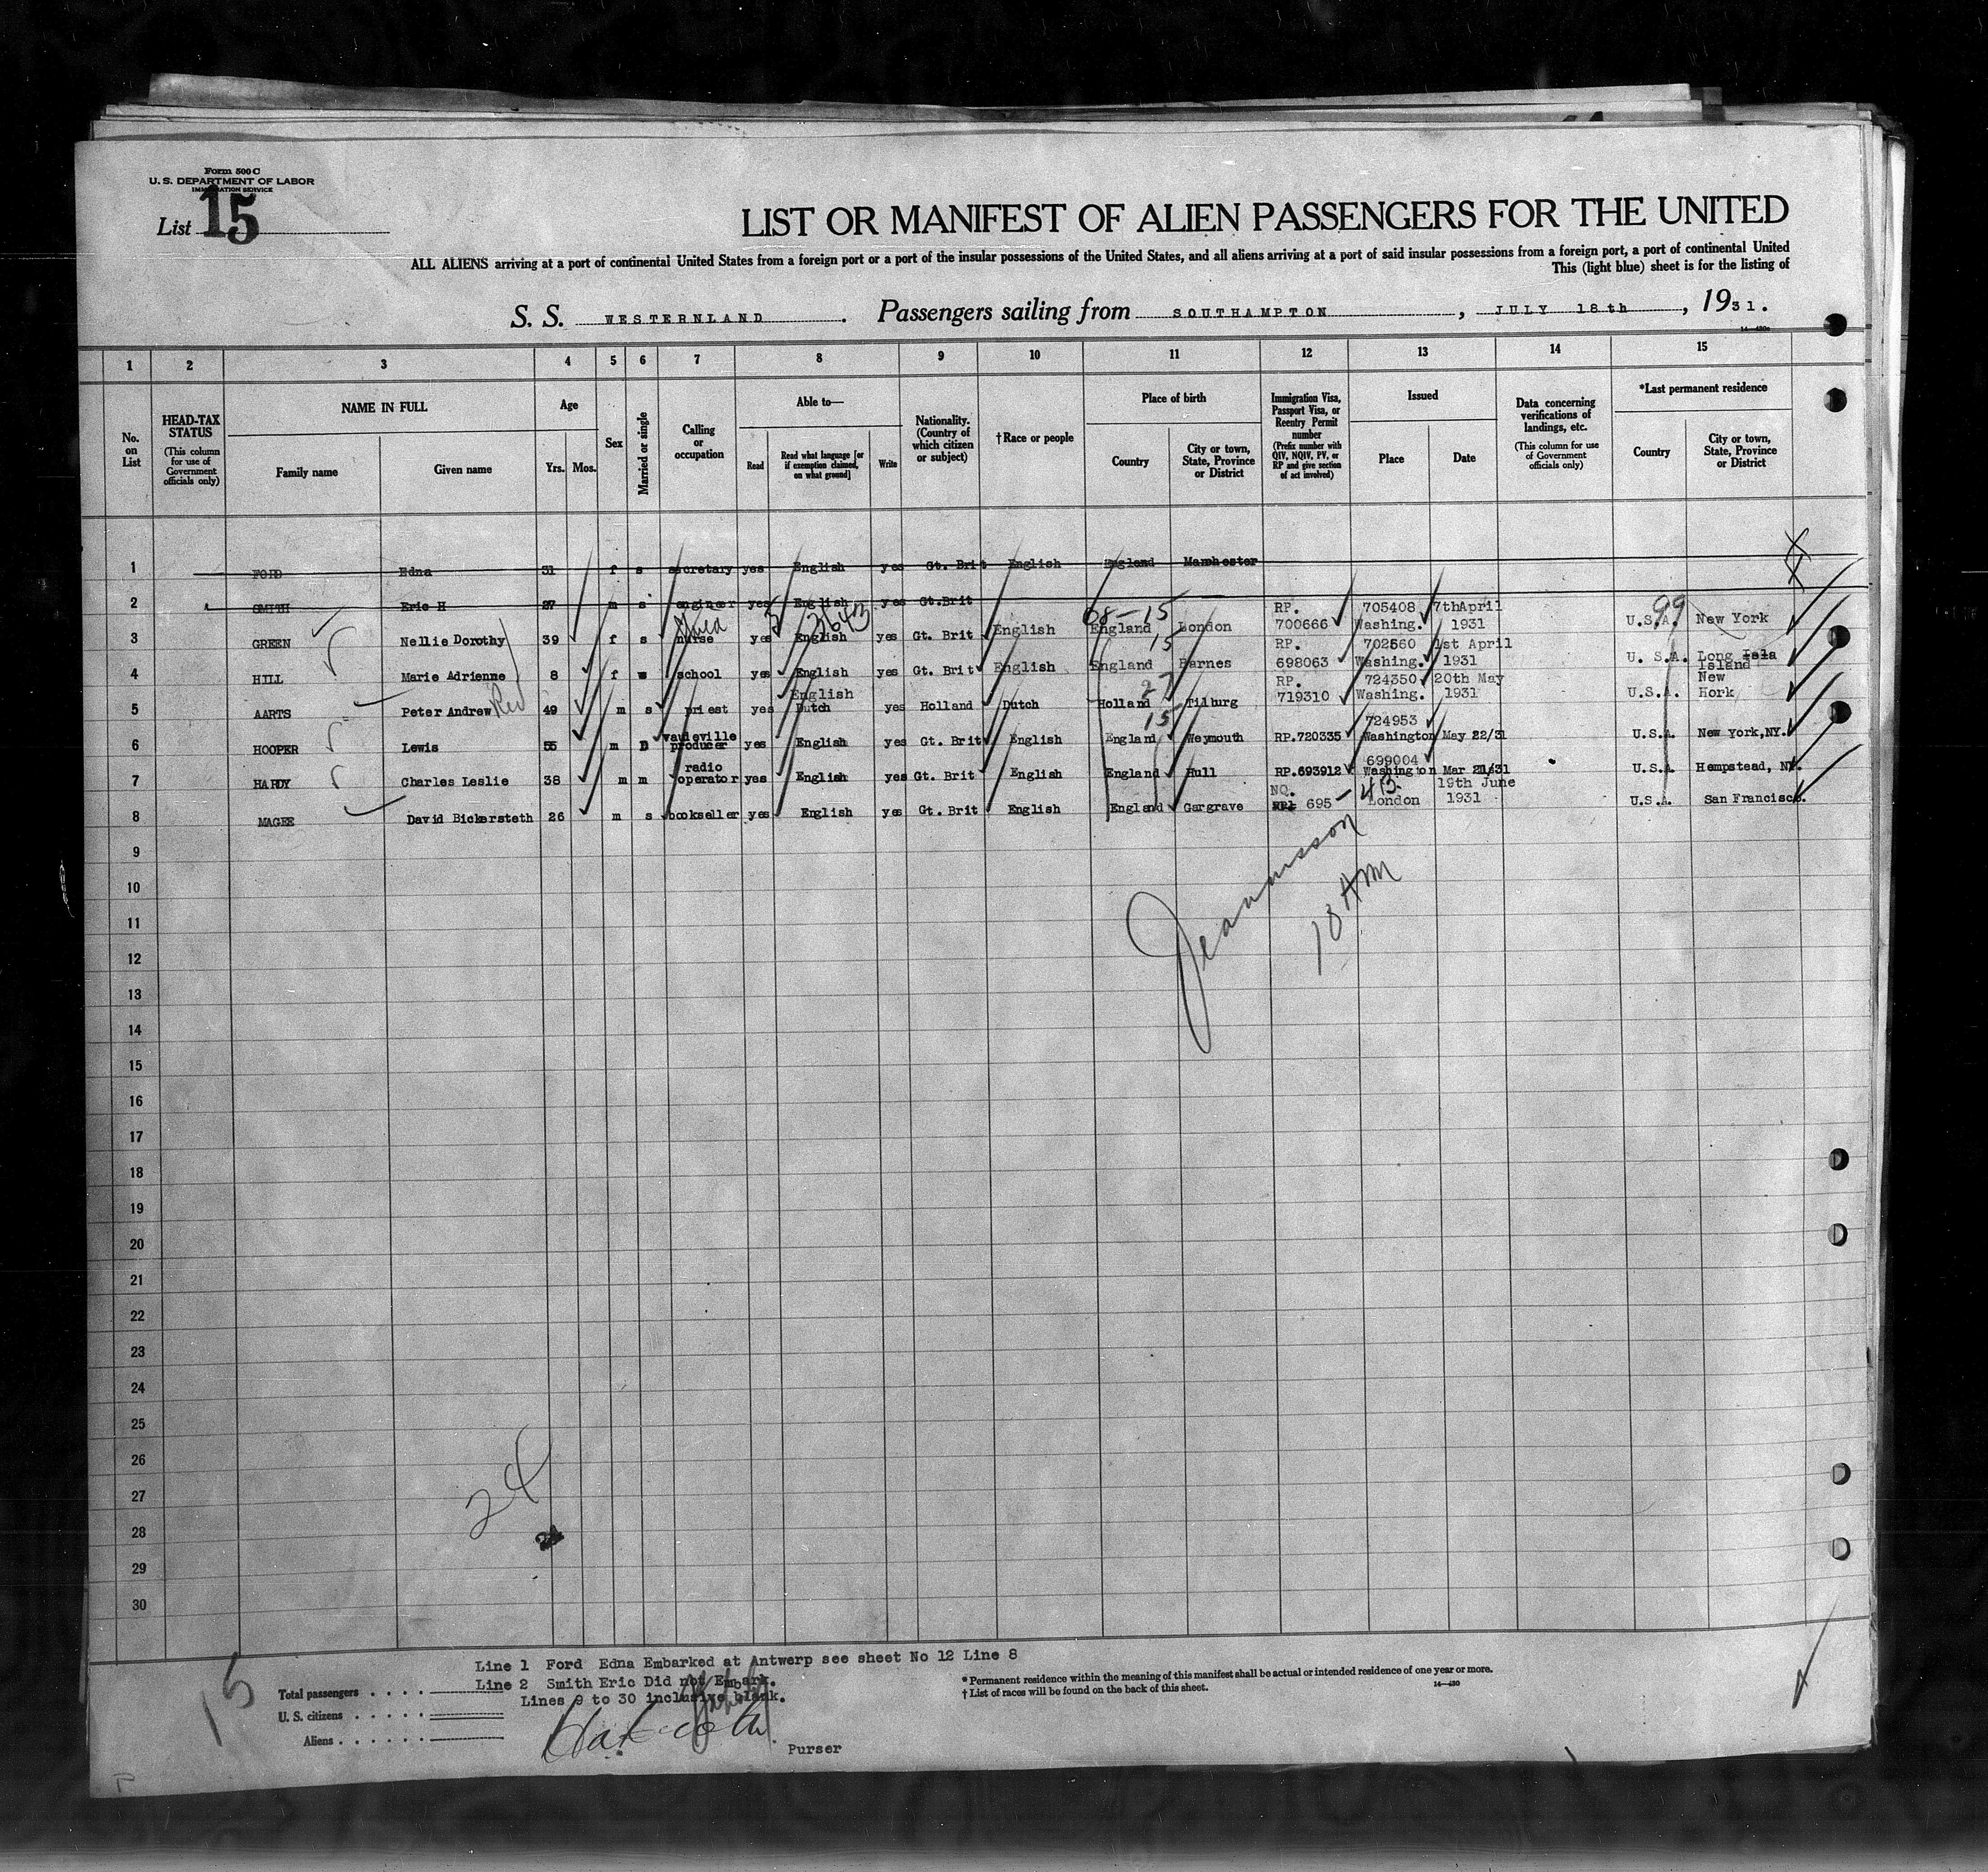 Form 500 C
U. S. DEPARTMENT OF LABOR
IMMIGRATION SERVICE
List 15
LIST OR MANIFEST OF ALIEN PASSENGERS FOR THE UNITED
ALL ALIENS arriving at a port of continental United States from a foreign port or a port of the insular possessions of the United States, and all aliens arriving at a port of said insular possessions from a foreign port, a port of continental United
This (light blue) sheet is for the listing of
S. S. WESTERNLAND . Passengers sailing from SOUTHAMPTON , JULY 18th , 1931.
1 2 3 4 5 6 7 8 9 10 11 12 13 14 15
No. on List
HEAD-TAX STATUS (This column for use of Government officials only)
NAME IN FULL
Family name
Given name
Age
Yrs. Mos.
Sex
Married or single
Calling or occupation
Able to—
Read
Read what language [or if exemption claimed, on what ground]
Write
Nationality. (Country of which citizen or subject)
†Race or people
Place of birth
Country
City or town, State, Province or District
Immigration Visa, Passport Visa, or Reentry Permit number (Prefix number with QIV, NQIV, PV, or RP and give section of act involved)
Issued
Place
Date
Data concerning verifications of landings, etc. (This column for use of Government officials only)
*Last permanent residence
Country
City or town, State, Province or District
1 FORD Edna 31 f s secretary yes English yes Gt. Brit English England Manchester
2 SMITH Eric H 27 m s engineer yes English yes Gt.Brit
3 GREEN Nellie Dorothy 39 f s nurse yes English yes Gt. Brit English England London RP. 700666 705408 Washing. 7thApril 1931 U.S.A. New York
4 HILL Marie Adrienne 8 f s school yes English yes Gt. Brit English England Barnes RP. 698063 702560 Washing. 1st April 1931 U. S.A. Long Isla Island
5 AARTS Peter Andrew Rev 49 m s priest yes English Dutch yes Holland Dutch Holland Tilburg RP. 719310 724350 Washing. 20th May 1931 U.S.A. New Hork
6 HOOPER Lewis 55 m D vaudeville producer yes English yes Gt. Brit English England Weymouth RP.720335 724953 Washington May 22/31 U.S.A. New York,NY.
7 HARDY Charles Leslie 38 m m radio operator yes English yes Gt. Brit English England Hull RP.693912 699004 Washington Mar 21/31 U.S.A Hempstead, NY.
8 MAGEE David Bickersteth 26 m s bookseller yes English yes Gt. Brit English England Gargrave NQ. 695 London 19th June 1931 U.S.A. San Francisco.
68-15
2643
15
27
15
99
- 4B.
10 AM
9
10
11
12
13
14
15
16
17
18
19
20
21
22
23
24
25
26
27
28
29
30
24
15
Line 1 Ford Edna Embarked at Antwerp see sheet No 12 Line 8
Line 2 Smith Eric Did not Embark.
Lines 9 to 30 inclusive blank.
Total passengers
U. S. citizens
Aliens
Purser
* Permanent residence within the meaning of this manifest shall be actual or intended residence of one year or more.
† List of races will be found on the back of this sheet.
14—430